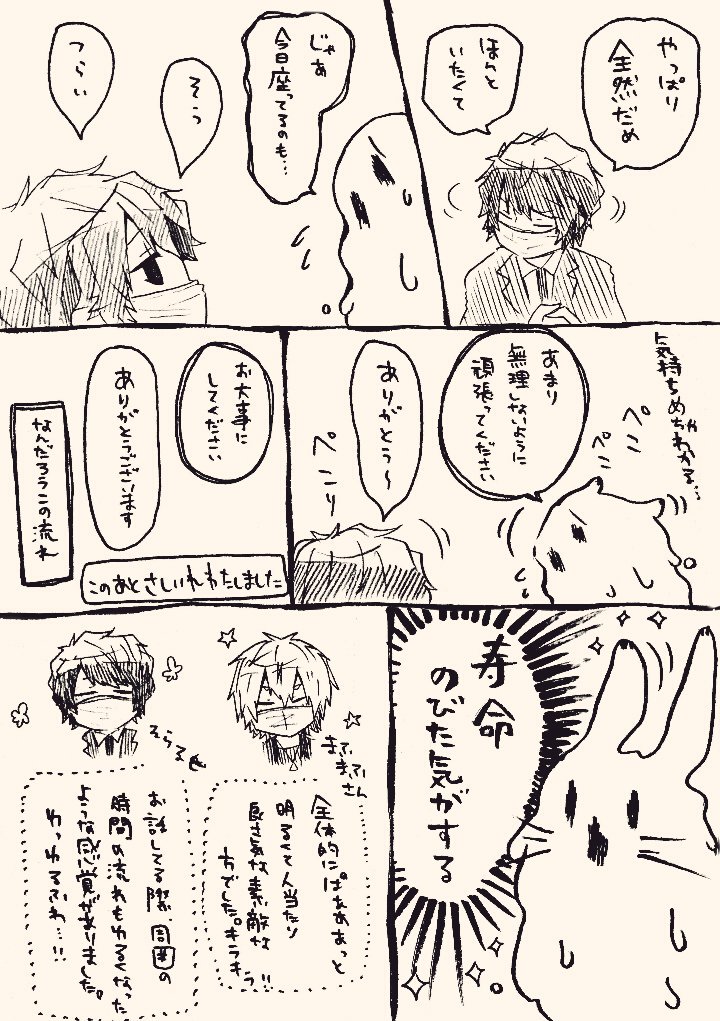 やっぱり
全然だめ
ほんと
いたくて
じゃあ
今日座ってるのも…
そう
つらい
気持ちめちゃわかる…
ペコ
ペコ
あまり
無理しないように
頑張ってください
ありがとう〜
ペこり
お大事に
してください
ありがとうございます
このあとさしいれわたしました
なんだろうこの流れ
寿命
のびた気がする
まふまふさん
全体的にぱぁぁぁっと
明るくて人当たり
良さ気な素敵な
方でした。キラキラ!!
そらる
お話してる際、周囲の
時間の流れもゆるくなった
ような感覚がありました。
ゆっゆるふわ…!!